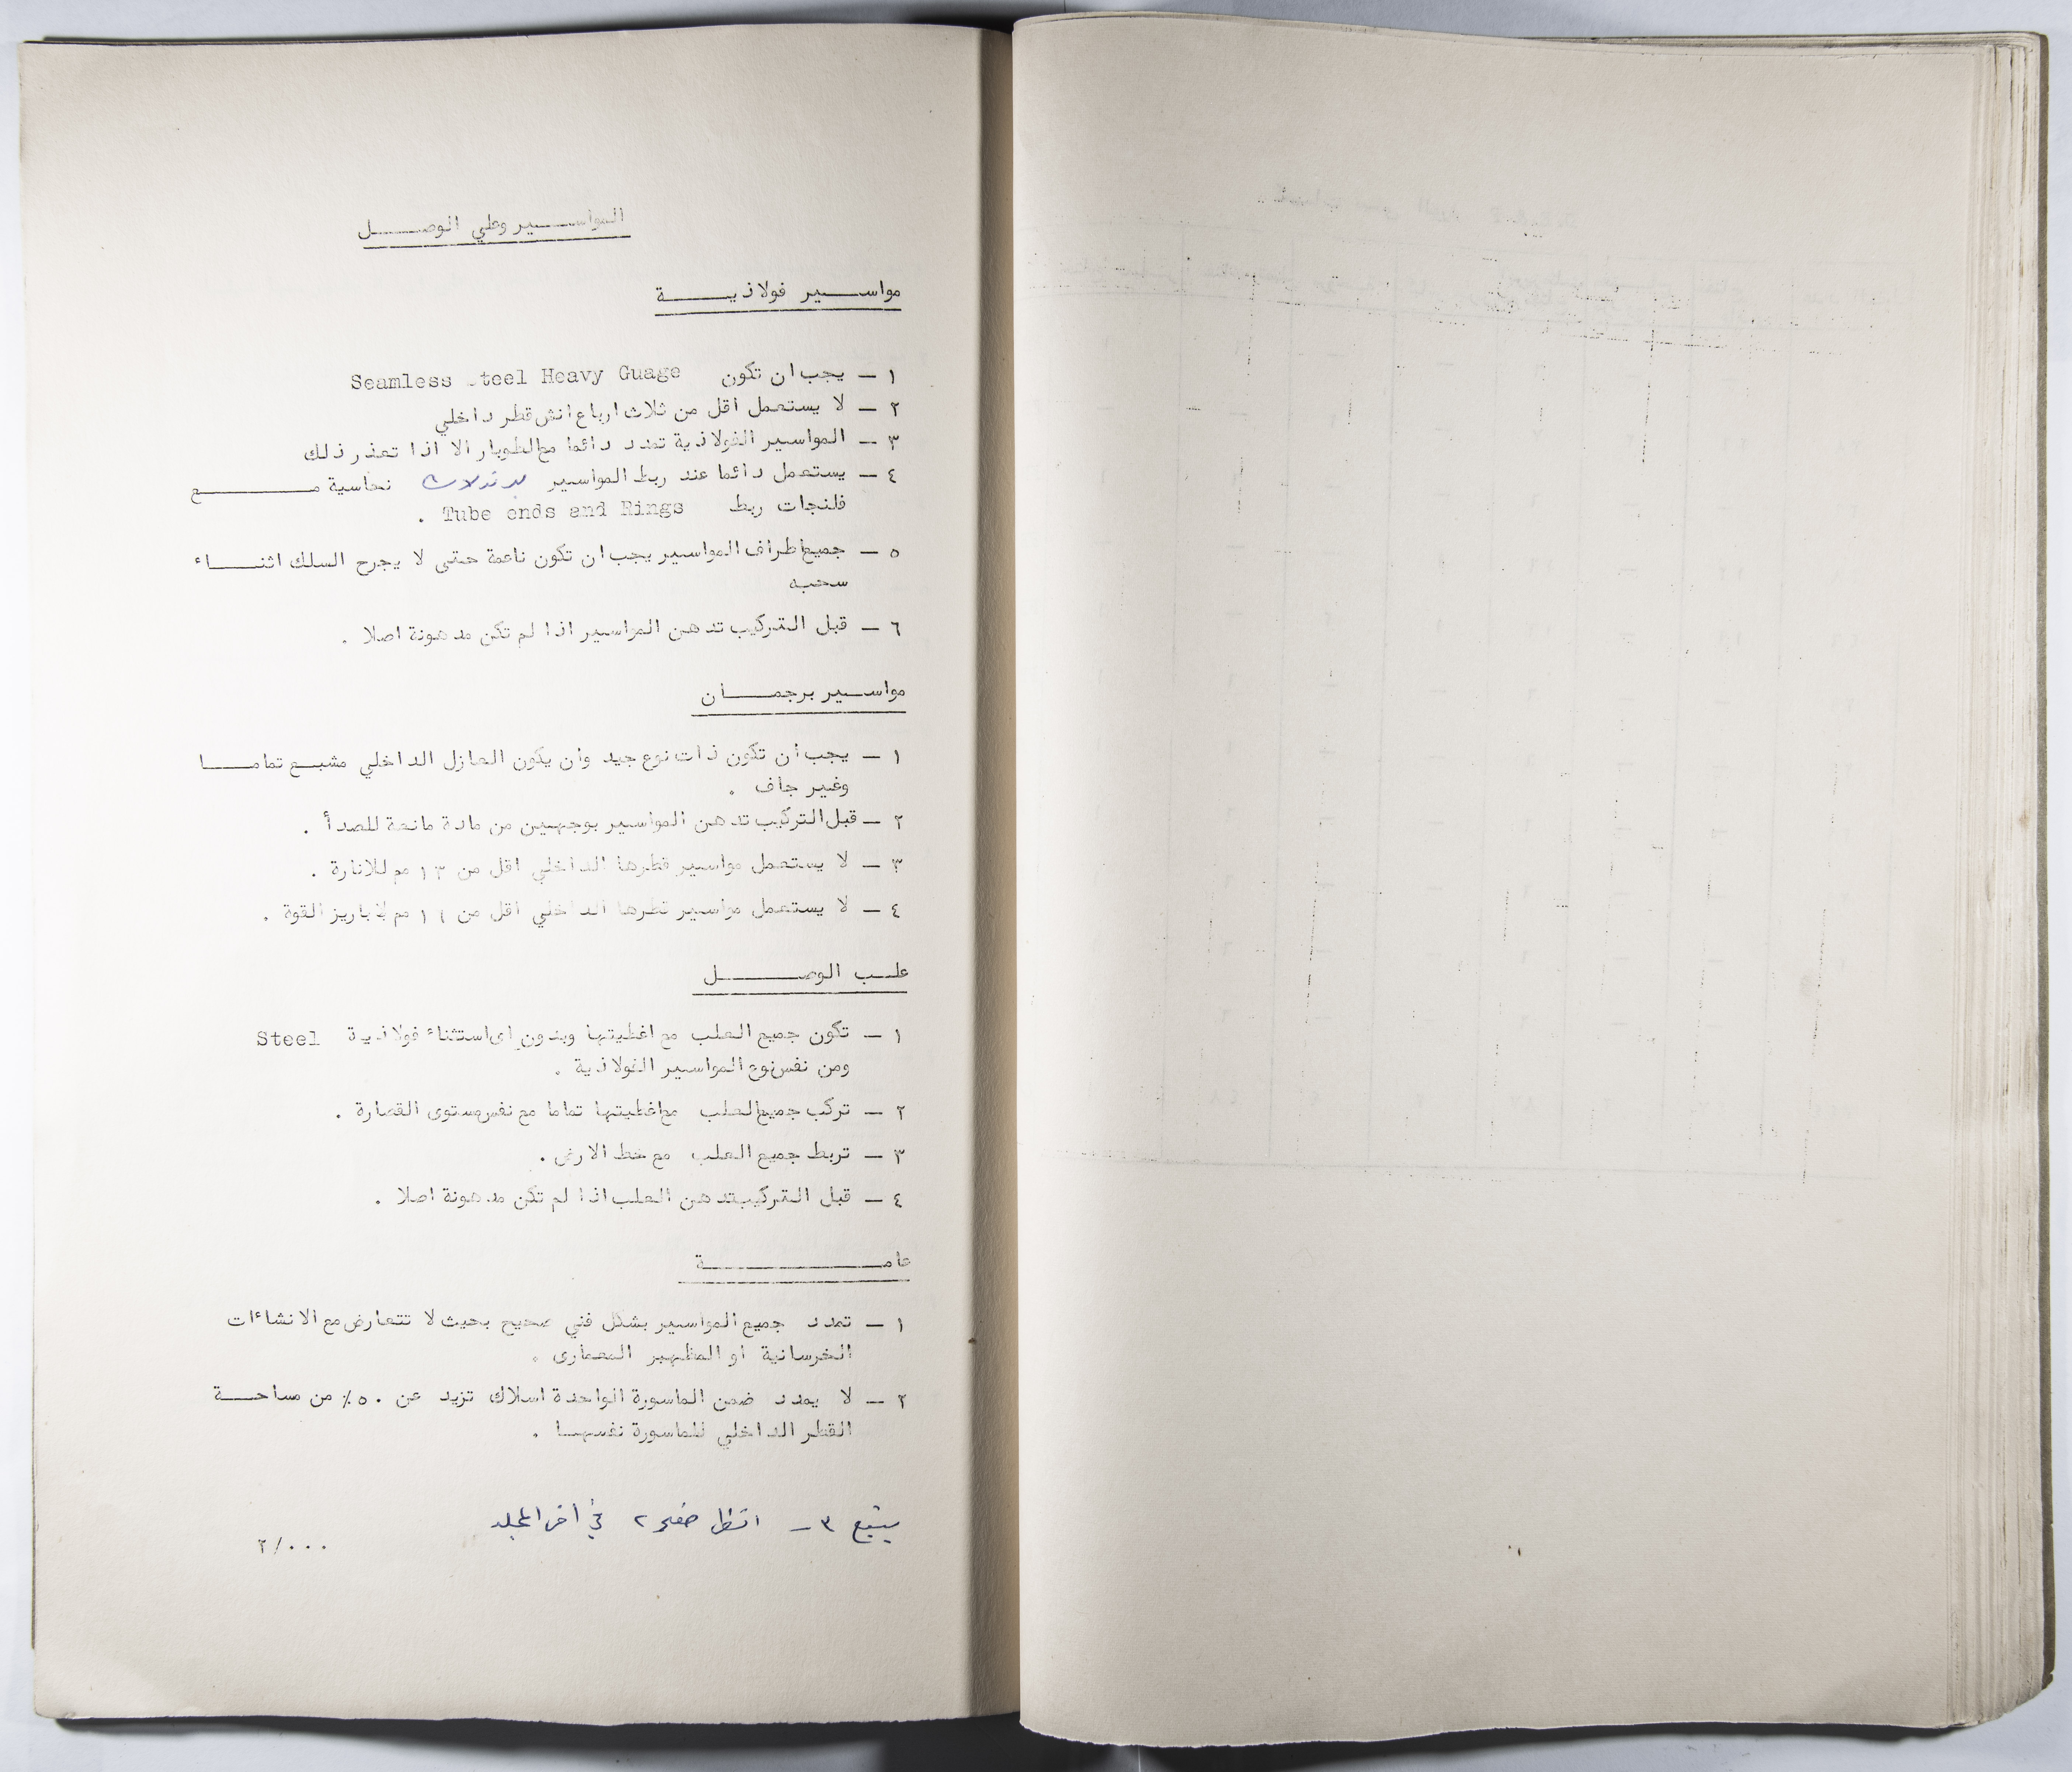 المواسير وعلي الوصل
مواسير فولاذية
١ – يجب ان تكون Seamless teel Heavy Guage
٢ – لا يستعمل اقل من ثلاث ارباع انش قطر داخلي
٣ – المواسير الفولاذية تمدد دائما مع الطوبار الا اذا تعذر ذلك
٤ – يستعمل دائما عند ربط المواسير نحاسية مع
فلنجات ربط Tube ends and Rings .
٥ – جميع اطراف المواسير يجب ان تكون ناعمة حتى لا يجرح السلك اثناء
سحبه
٦ – قبل التركيب تدهن المواسير اذا لم تكن مدهونة اصلا .
مواسير برجمان
١ – يجب أن تكون ذات نوع جيد وان يكون العازل الداخلي مشبع تماما
وغير جاف .
٢ – قبل التركيب تدهن المواسير بوجهين من مادة مانعة للصدأ .
٣ – لا يستعمل مواسير قطرها الداخلي اقل من ١٣ مم للانارة .
٤ – لا يستعمل مواسير قطرها الداخلي اقل من مم لأباريز القوة .
علب الوصل
١ – تكون جميع العلب مع اغطيتها وبدون اى استثناء فولاذية Steel
ومن نفس نوع المواسير الفولاذية .
٢ – تركب جميع العلب مع اغطيتها تماما مع نفس مستوى القصارة .
٣ – تربط جميع العلب مع خط الارضى .
٤ – قبل التركيب تدهن العلب اذا لم تكن مدهونة اصلا .
عامة
١ – تمدد جميع المواسير بشكل فني صحيح بحيث لا تتعارض مع الانشاءات
الخرسانية او المظهر المعمارى .
٢ – لا يمدد ضمن الماسورة الواحدة اسلاك تزيد عن ٥٠٪ من مساحة
القطر الداخلي للماسورة نفسها .
يتبع ٣ – انظر صفحة ٢ في آخر المجلد
٢/٠٠٠